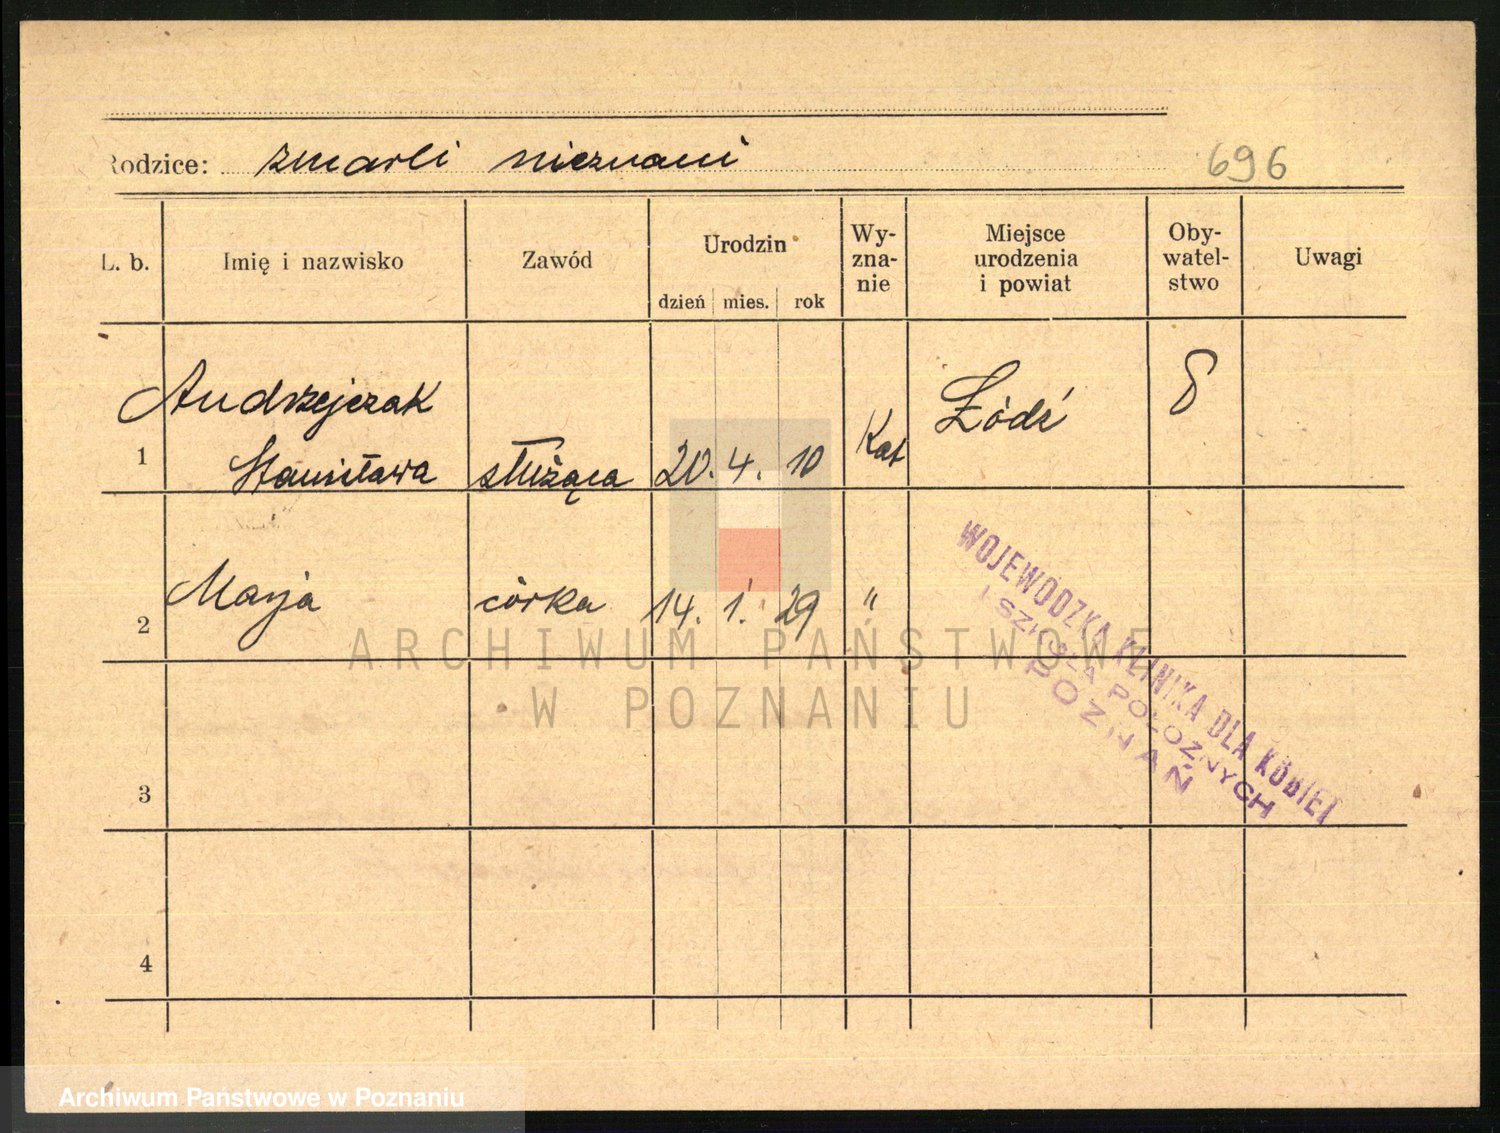 Rodzice: zmarli nieznani
696
L. b. Imię i nazwisko Zawód Urodzin dzień mies. rok Wy-zna-nie Miejsce urodzenia i powiat Oby-watel-stwo Uwagi
Andrzejczak
1 Stanisława służąca 20. 4. 10 Kat Łódź
2 Marja córka 14. 1. 29 "
3
4
WOJEWÓDZKA KLINIKA DLA KOBIET
I SZKOŁA POŁOŻNYCH
POZNAŃ
ARCHIWUM PAŃSTWOWE
W POZNANIU
Archiwum Państwowe w Poznaniu